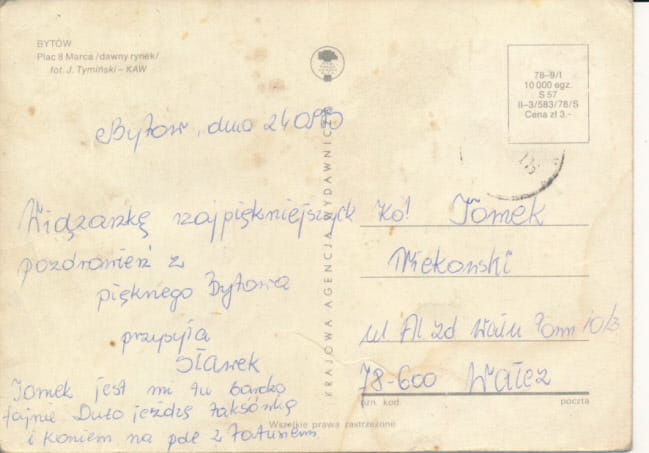 BYTÓW
Plac 8 Marca /dawny rynek/
fot. J. Tymiński – KAW
78–9/I
10 000 egz.
S 57
II–3/583/78/S
Cena zł 3.–
KRAJOWA AGENCJA WYDAWNICZA
Bytów, dnia
Wiązankę najpiękniejszych
pozdrowień z
pięknego Bytowa
przysyła
Sławek
Tomek jest mi tu bardzo
fajnie Dużo jeżdżę taksówką
i koniem na pole z tatusiem
Kol Tomek
ul Al Zd Wału Pom 10/3
78-600 Wałcz
ozn. kod.
poczta
Wszelkie prawa zastrzeżone